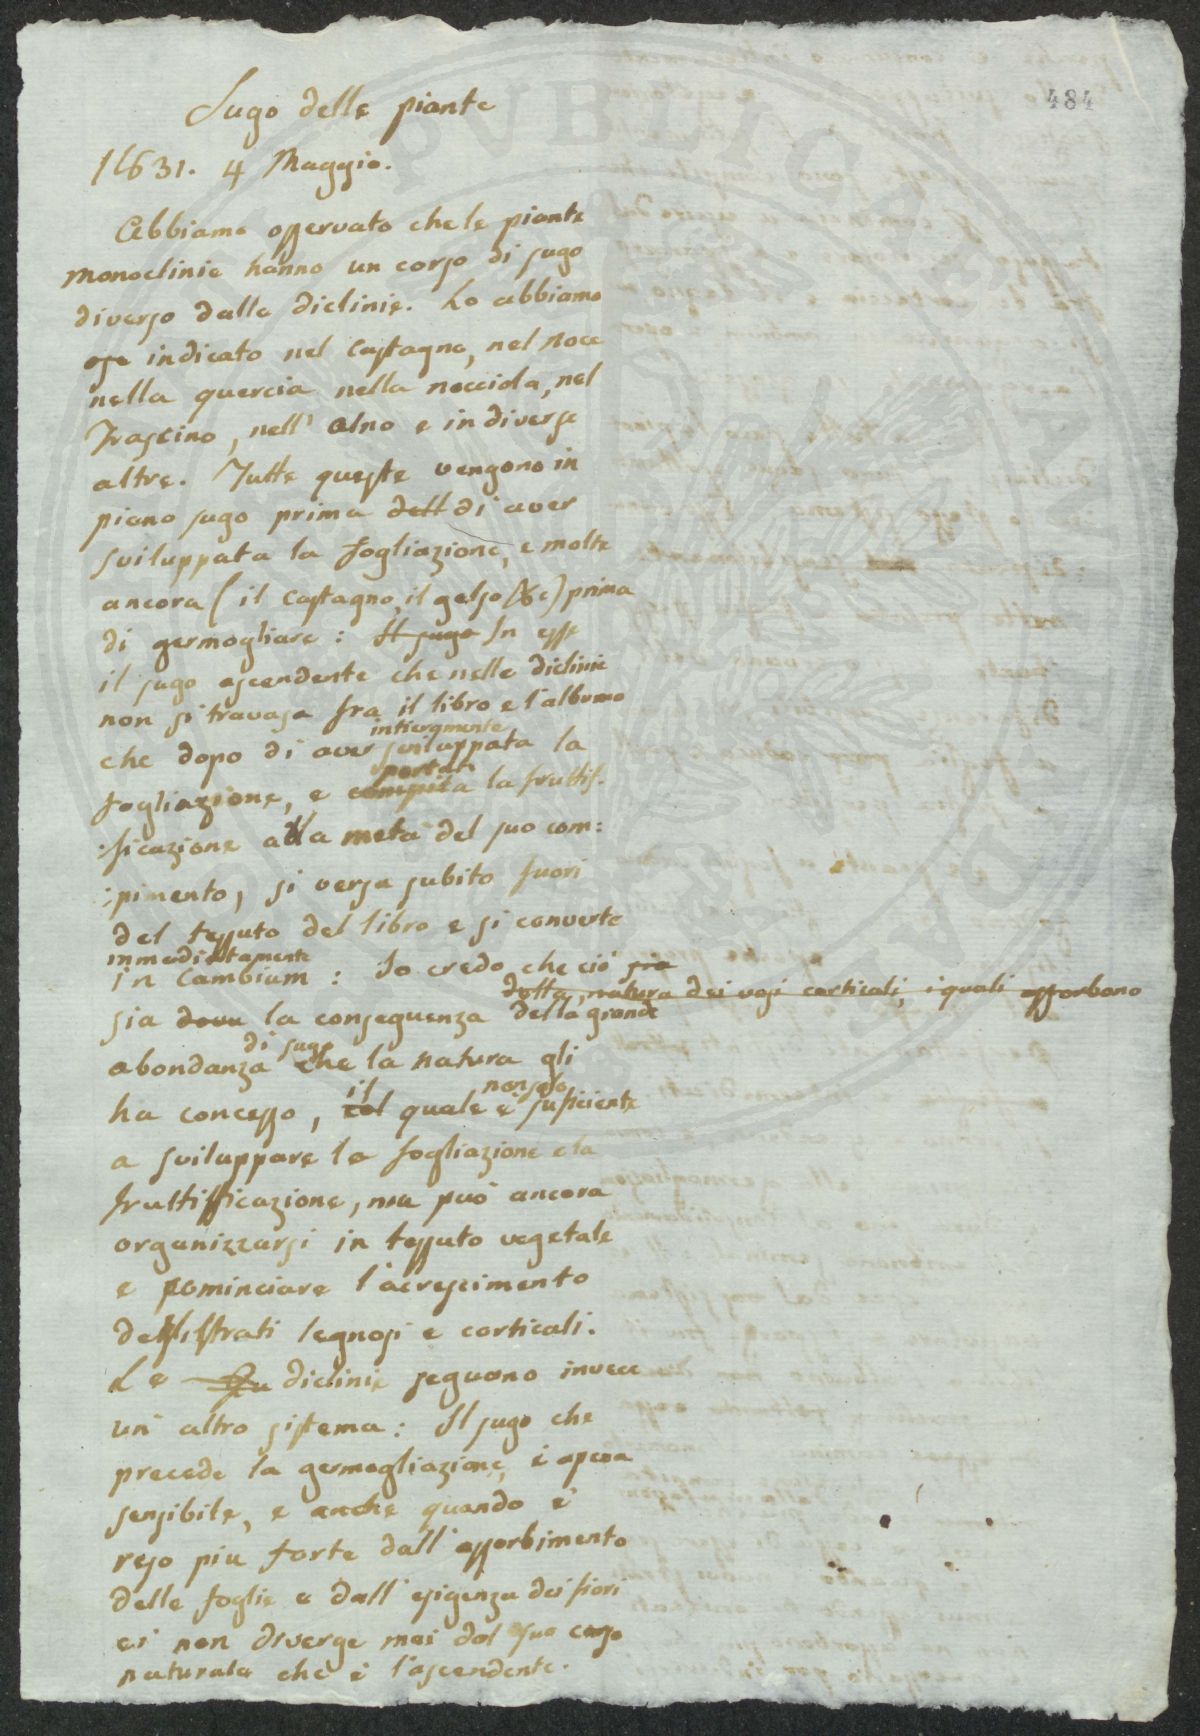 484
Sugo delle piante
1831. 4 Maggio.
Abbiamo osservato che le piante
monoclinie hanno un corso di sugo
diverso dalle diclinie. Lo abbiamo
indicato nel Castagno, nel Noce
nella quercia nella nocciola, nel
Frascino, nell' Alno e in diverse
altre. Tutte queste vengono in
pieno sugo prima dell di aver
sviluppata la fogliazione, e molte
ancora (il Castagno, il gelso &c) prima
di germogliare: Il sugo In esse
il sugo ascendente che nelle diclinie
non si travasa fra il libro e l'alburno
intieramente
che dopo di aver sviluppata la
portata
fogliazione, e compita la fruttif-
:ficazione alla metà del suo com:
:pimento, si versa subito fuori
del tessuto del libro e si converte
immediatamente
in Cambium: Io credo che ciò sia
della natura dei vasi corticali, i quali assorbono
sia la conseguenza della grande
di sugo
abondanza che la natura gli
il non solo
ha concesso, col quale è suficiente
a sviluppare la fogliazione e la
fruttifficazione, ma può ancora
organizzarsi in tessuto vegetale
e cominciare l'acrescimento
degli strati legnosi e corticali.
Le diclinie seguono invece
un altro sistema: Il sugo che
precede la germogliazione, è apena
sensibile, e anche quando è
reso piu forte dall'assorbimento
delle foglie e dall'esigenza dei fiori
ei non diverge mai dal suo corso
naturale che è l'ascendente.